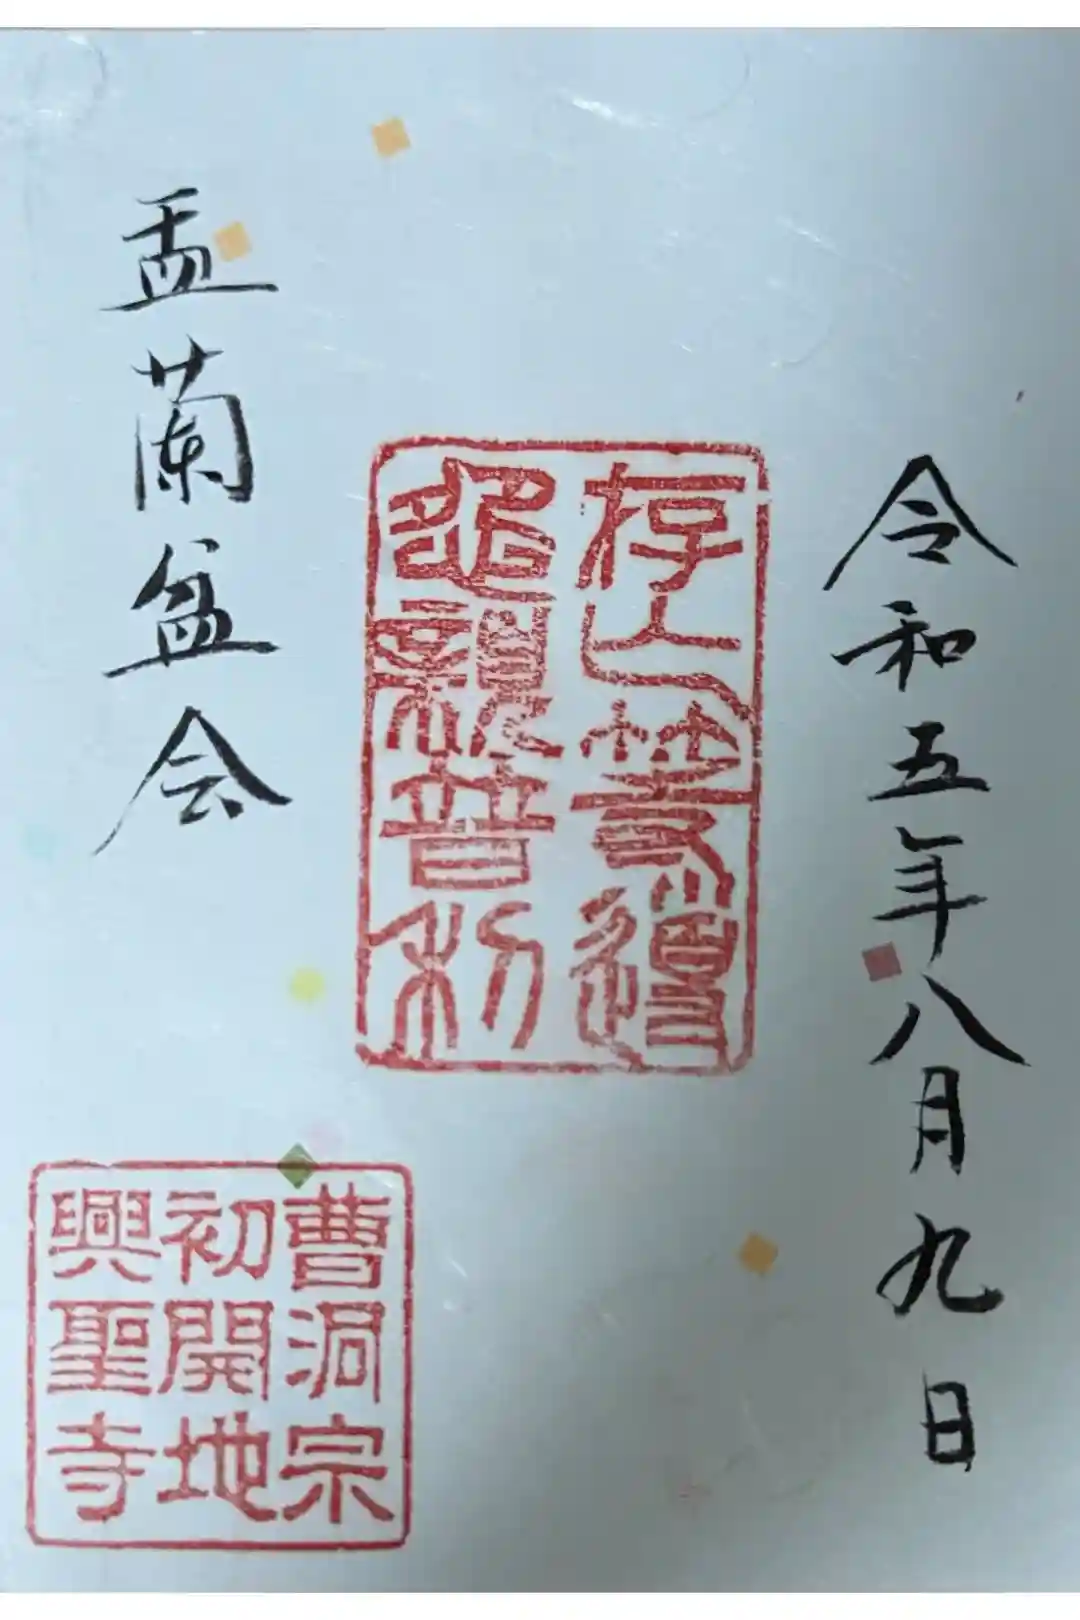 令和五年八月九日
存亡等導
親普利
盂蘭盆会
曹洞宗
初開地
興聖寺